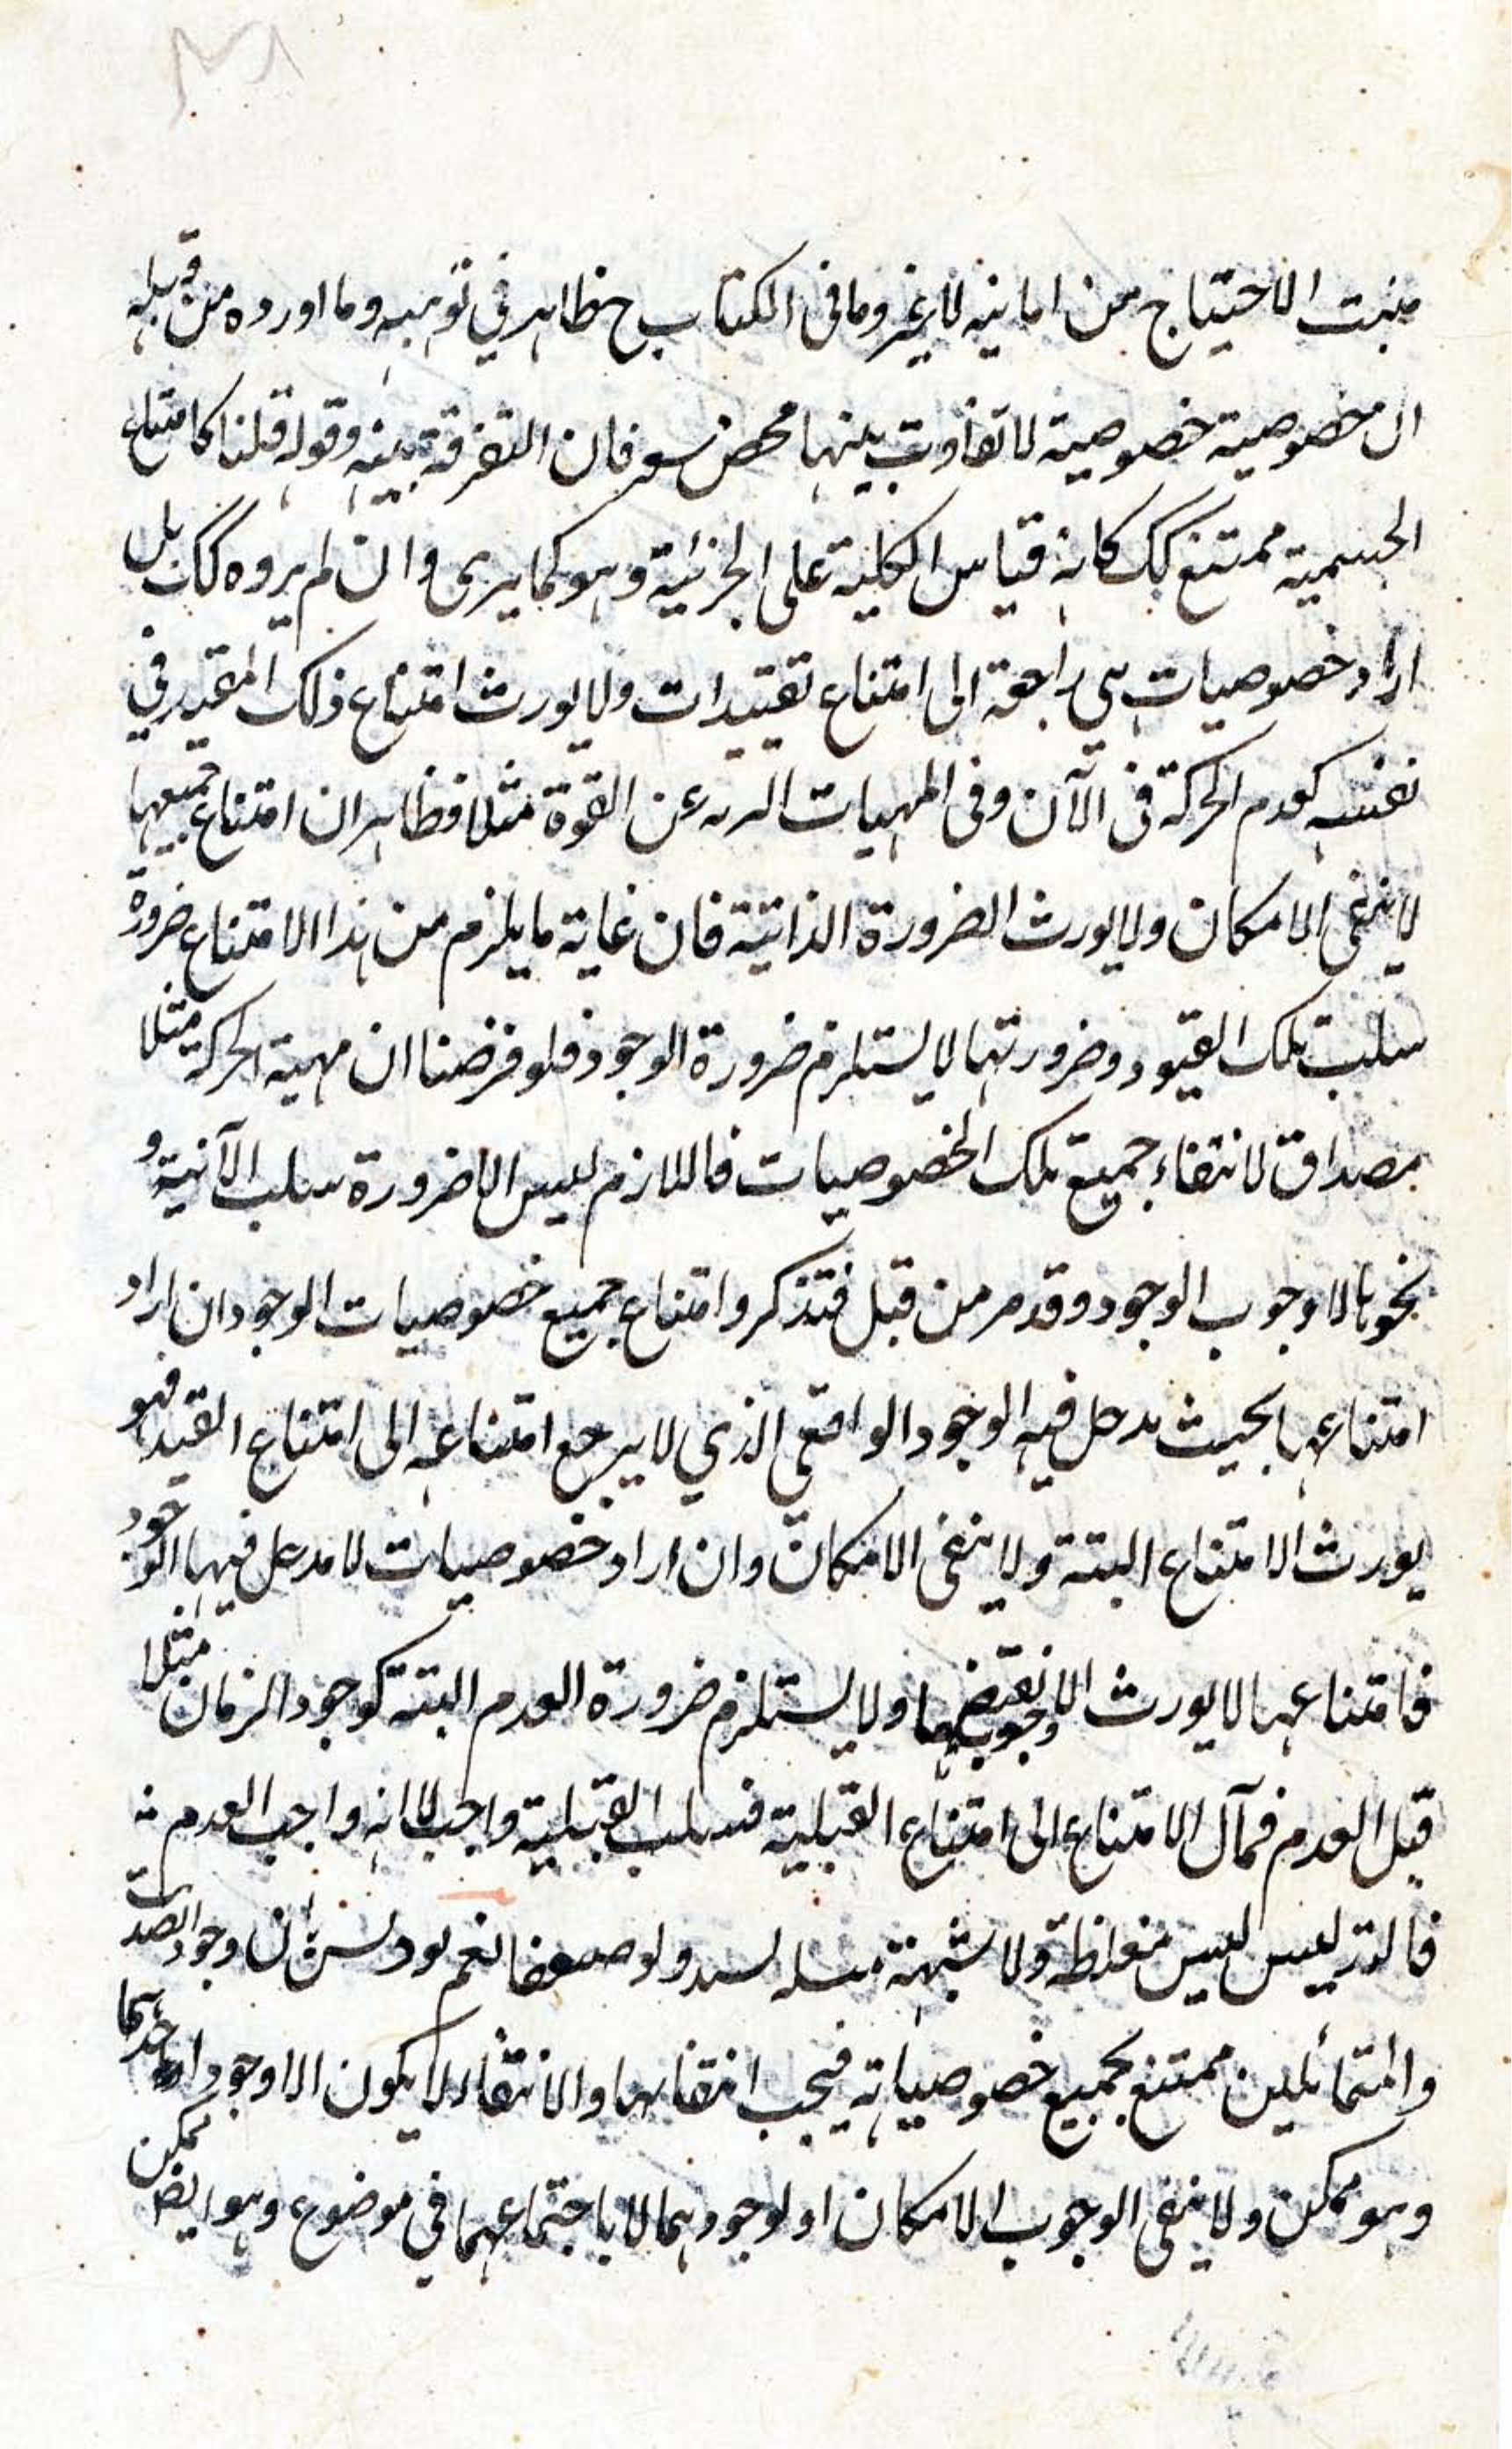 الاحتياج من لا غير وما في الكتاب ح ظاهر في توهبه وما اورده من قبله
ان خصوصية خصوصية لا تفاوت بينها محض فان التفرقة بينه وقوله قلنا كامتناع
الجسمية ممتنع كك كانه قياس الكلية على الجزئية وهو كما يرى وان لم يروه كك بل
اراد خصوصيات هي راجعة الى امتناع تقييدات ولا يورث امتناع ذلك المقيد في
نفسه كعدم الحركة في الآن وفي المهيات عن القوة مثلا فظاهر ان امتناع جميعها
لا ينفي الامكان ولا يورث الضرورة الذاتية فان غاية ما يلزم من هذا الامتناع ضرورة
سلب تلك القيود وضرورتها لا يستلزم ضرورة الوجود فلو فرضنا ان مهية الحركة مثلا
مصداق لانتفاء جميع تلك الخصوصيات فاللازم ليس الا ضرورة سلب الآنية و
نحوها لا وجوب الوجود وقد مر من قبل فتذكر وامتناع جميع خصوصيات الوجود ان اراد
امتناعها بحيث يدخل فيه الوجود الواقعي الذي لا يرجع امتناعه الى امتناع القيد فهو
يورث الامتناع البتة ولا ينفي الامكان وان اراد خصوصيات لا مدخل فيها الوجود
فامتناعها لا يورث الا وجوب نقيضها ولا يستلزم ضرورة العدم البتة كوجود الزمان مثلا
قبل العدم فمآل الامتناع الى امتناع القبلية فسلب القبلية واجب لا انه واجب العدم
فالتزليس ليس مغلظة ولا شبهة ولو ضعفا نعم ان وجود الضدين
والمتماثلين ممتنع بجميع خصوصياته فيجب انتفاؤهما والانتفاء لا يكون الا لوجود احدهما
وهو ممكن ولا ينفي الوجوب الامكان او لوجودهما لا باجتماعهما في موضوع وهو ايضا ممكن